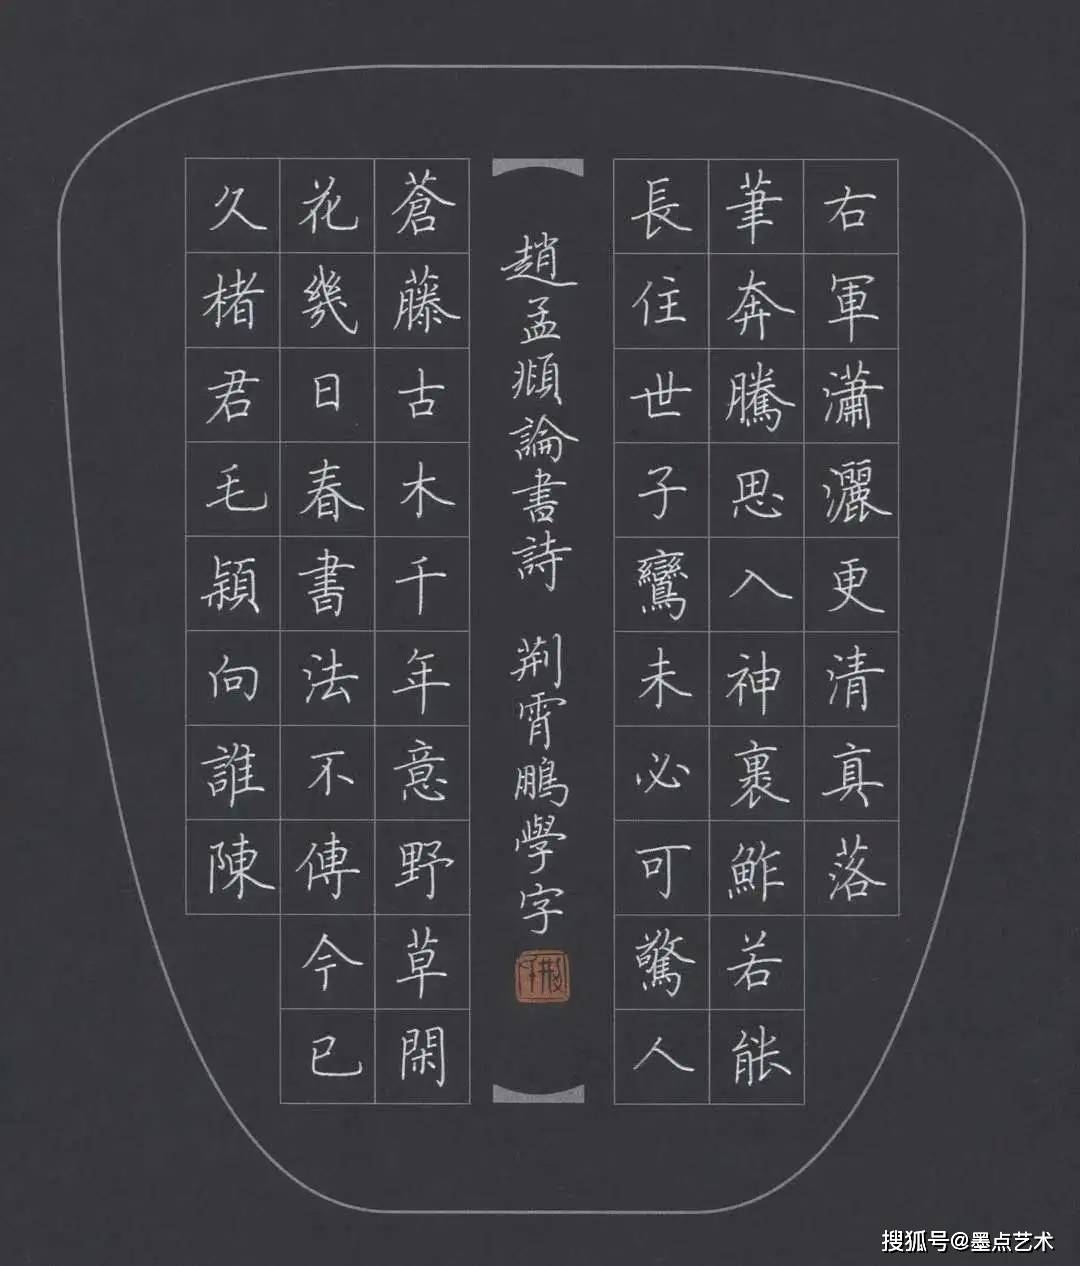 右軍瀟灑更清真落
筆奔騰思入神裹鮓若能
長住世子鸞未必可驚人
趙孟頫論書詩 荊霄鵬學字
蒼藤古木千年意野草閑
花幾日春書法不傳今已
久楮君毛穎向誰陳
搜狐号@墨点艺术